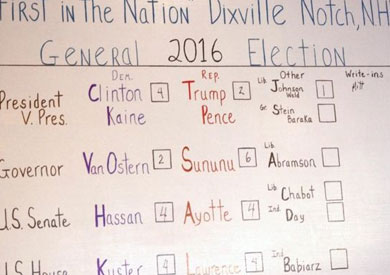 First in The Nation Dixville Notch, NH
General 2016 Election
Dem. Rep. Other Write-ins
President Clinton 4 Trump 2 Lib Johnson 1
V. Pres. Kaine Pence Weld
Gr Stein
Baraka
Governor Van Ostern 2 Sununu 6 Lib Abramson
Lib Chabot
U.S. Senate Hassan 4 Ayotte 4 Ind Day
U.S. House Kuster 4 Lawrence Ind Babiarz